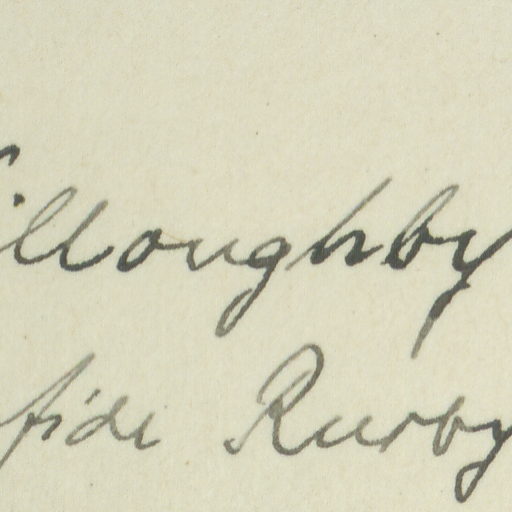 illoughby
fide Rusby